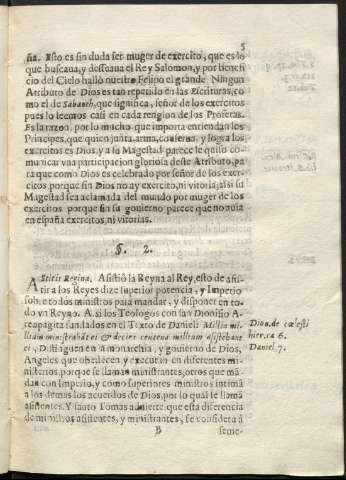 5
ña. Esto es sin duda ser muger de exercito, que es lo
que buscaua, y desseaua el Rey Salomon, y por benefi
cio del Cielo hallò nuestro Felipo el grande Ningun
Atributo de Dios es tan repetido en las Escrituras, co
mo el de Sabaoth, que significa, señor de los exercitos
pues lo leemos casi en cada renglon de los Profetas.
Es la razon, por lo mucho que importa entiendan los
Principes, que quien junta, arma, conserua, y logra los
exercitos es Dios, y a su Magestad parece le quiso co-
municar vna participacion gloriosa deste Atributo, pa
ra que como Dios es celebrado por señor de los exer-
citos porque sin Dios no ay exercito, ni vitoria; assi su
Magestad sea aclamada del mundo por muger de los
exercitos porque sin su gouierno parece que no auia
en españa exercitos, ni vitorias.
§. 2.
Astitit Regina. Assistiò la Reyna al Rey, esto de assi-
tir a los Reyes dize superior potencia, y Imperio
sobre todos ministros para mandar, y disponer en to-
do vn Reyno. A si los Teologos con san Dionisio A-
reapagita fundados en el Texto de Daniel: Millia mil-
lium ministrabāt ei & decies centena millium assistebant
ei, Distinguen en la monarchia, y gouierno de Dios,
Angeles que obedecen, y executan en diferentes mi-
nisterios, porque se llaman ministrantes, otros que mā-
dan con Imperio, y como superiores ministros intimā
a los demas los acuerdos de Dios, por lo qual le llamā
assistentes. Y santo Tomas aduierte que esta diferencia
de ministros assistentes, y ministrantes, se considera à
B
seme-
Dion. de cœlesti
hier. ca 6.
Daniel. 7.